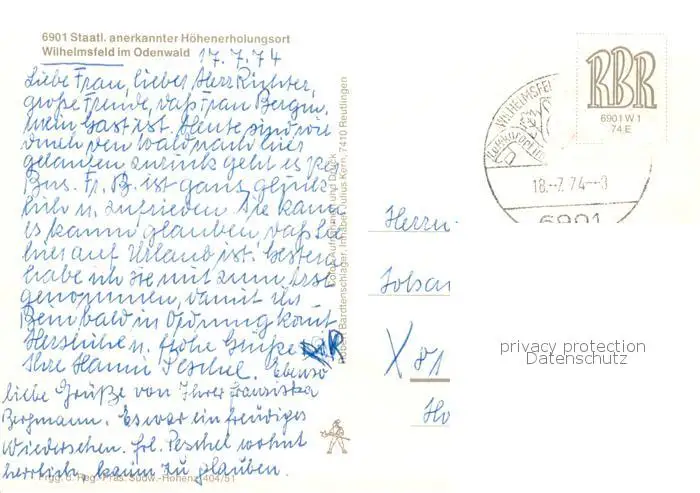 6901 Staatl. anerkannter Höhenerholungsort
Wilhelmsfeld im Odenwald
17.7.74
Liebe Frau, lieber Herr Richter,
große Freude, daß Frau Bergm.
mein Gast ist. Heute sind wir
durch den Wald nach hier
gelaufen zurück geht es per
Bus. Fr. B. ist ganz glück
lich u. zufrieden. Sie kann
es kaum glauben, daß sie
hier auf Urlaub ist. Gestern
habe ich sie mit zum Arzt
genommen, damit ihr
Bein bald in Ordnung kommt
Herzlichen u. frohe Grüße
Ihre Hanni Peschel. Ebenso
liebe Grüße von Ihrer Franziska
Bergmann. Es war ein freudiges
Wiedersehen. Frl. Peschel wohnt
herrlich, kaum zu glauben.
Frgg. d. Reg.-Präs. Südw.-Hohenz. 404/51
Color-Aufnahme und Druck
Bardtenschlager, Inhaber Julius Kern, 7410 Reutlingen
RBR
6901 W 1
74 E
WILHELMSFE
18.-7.74--3
6901
Herrn
X 81
privacy protection
Datenschutz